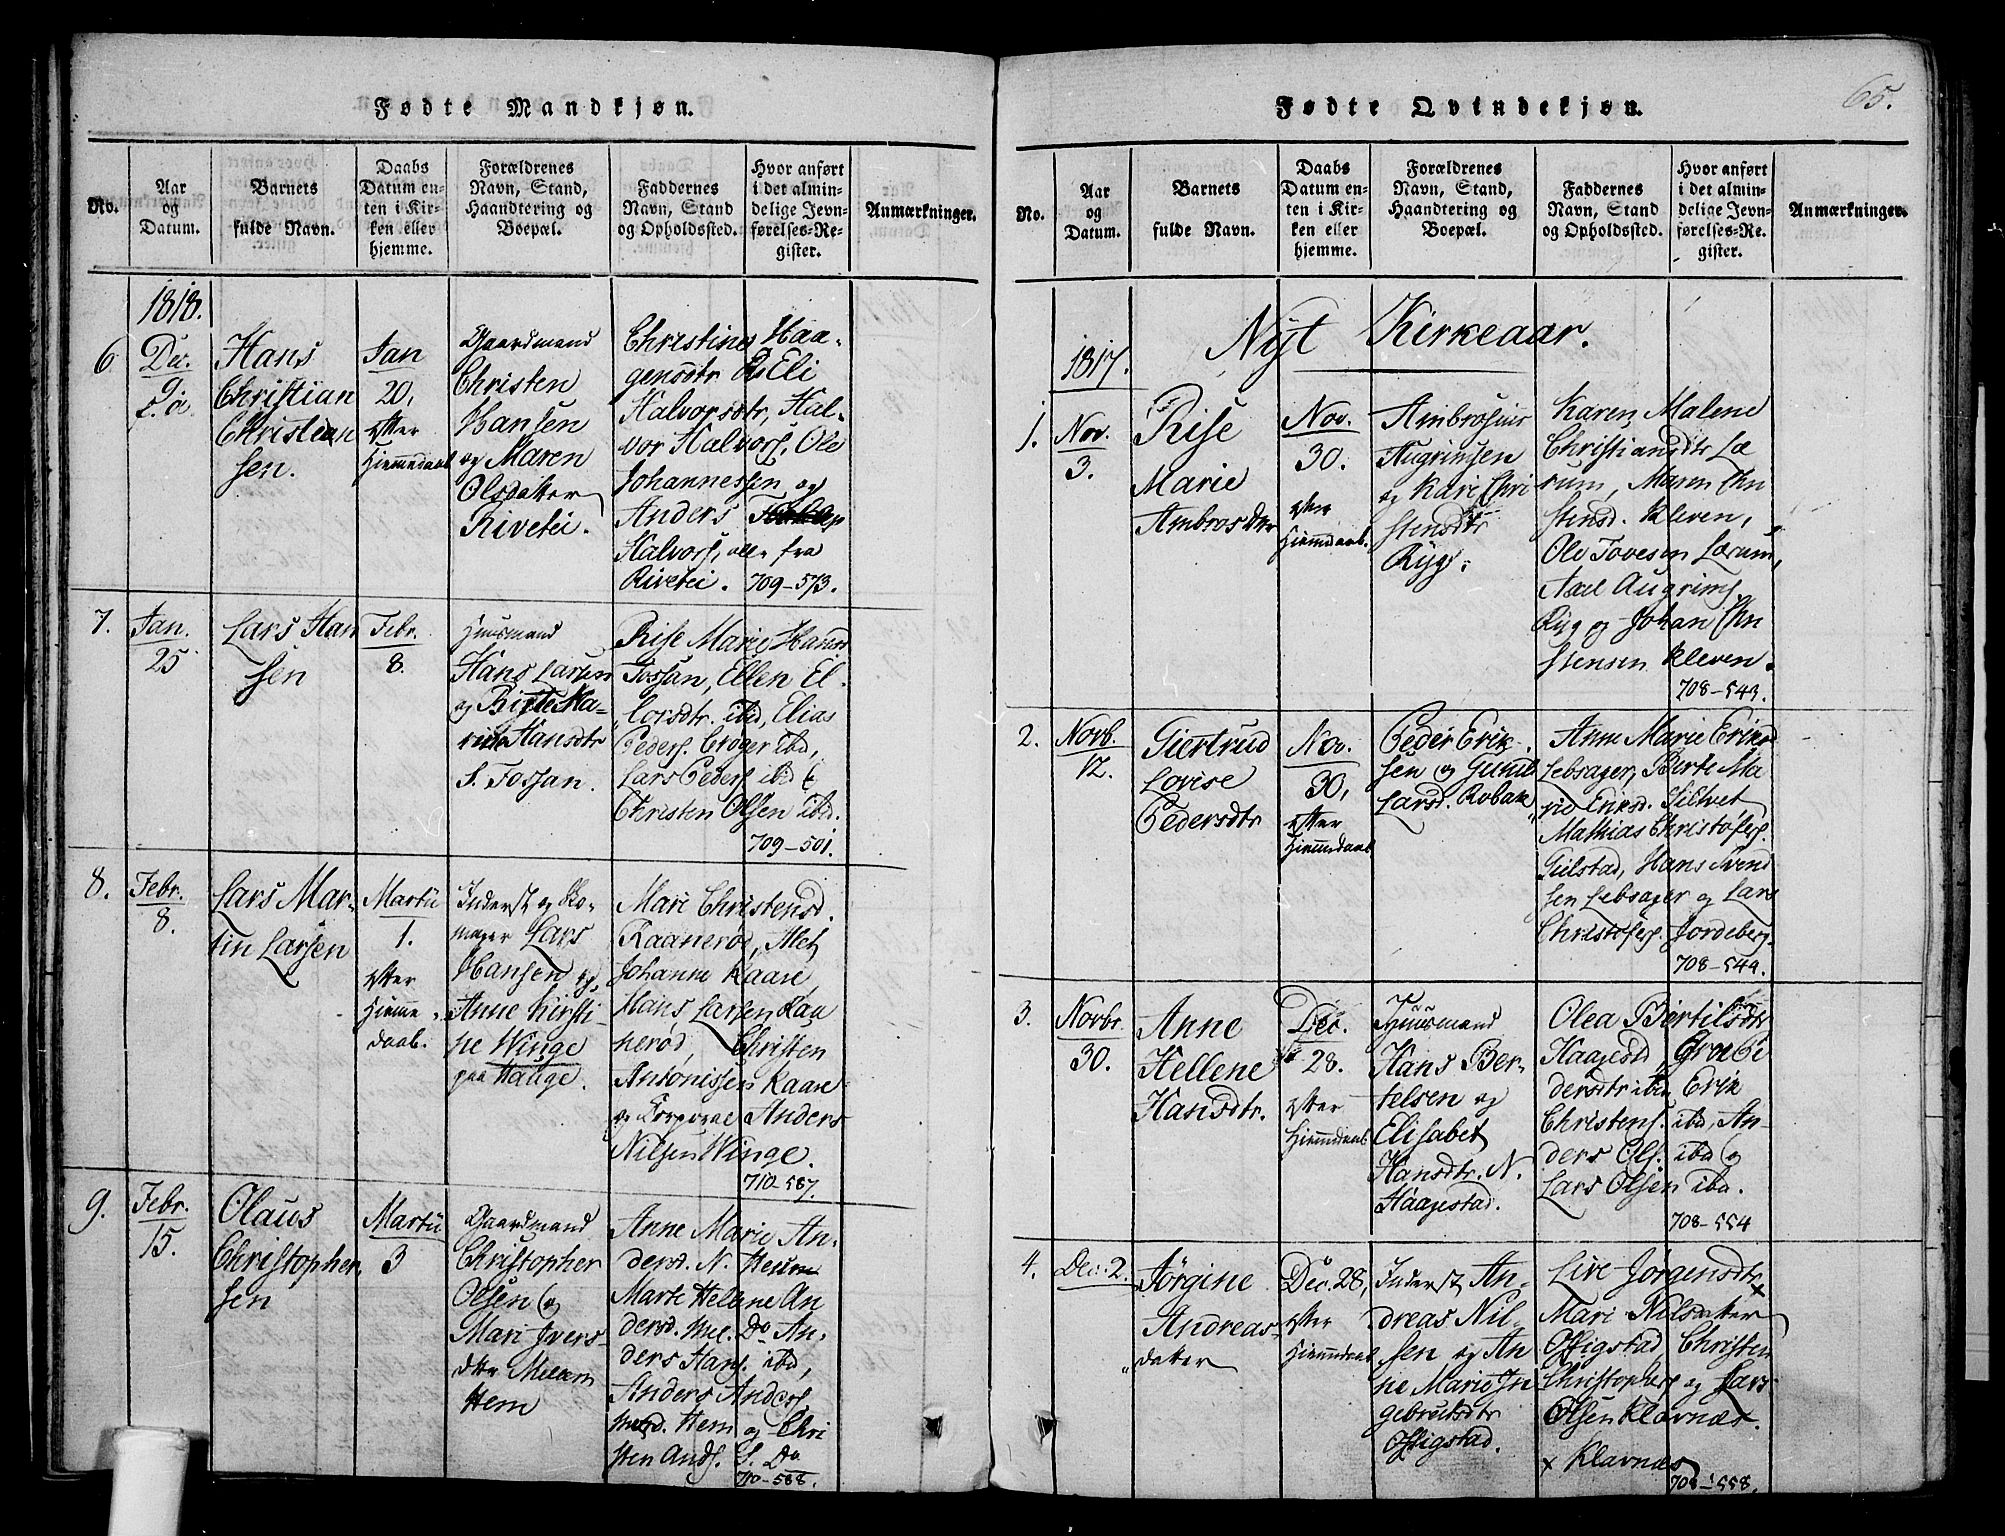 65.
Fødte Mandkjøn.
No.
Aar
og
Datum.
Barnets
fulde Navn.
Daabs
Datum en-
ten i Kir-
ken eller
hjemme.
Forældrenes
Navn, Stand,
Haandtering og
Boepæl.
Faddernes
Navn, Stand
og Opholdssted.
Hvor anført
i det almin-
delige Jevn-
førelses-Re-
gister.
Anmærkninger.
1818.
6
Dec.
9
Hans
Christian
Christian
sen.
Jan
20,
efter
Hiemmedaab
Gaardmand
Christen
Hansen
og Maren
Olsdatter
Rivetei.
Christine Haa-
gensdtr Eli
Halvorsdtr, Hal-
vor Halvors, Ole
Johannessen og
Anders
Halvors, alle fra
Rivetei. 709-573.
7.
Jan.
25
Lars Han
sen
Febr.
8.
Huusmand
Hans Larsen
og Birte Ma-
rie Hansdtr
S. Fossan.
Rise Marie Hansd
Fossan, Ellen El-
lorsdtr. ibid, Elias
Peders. Croger ibd,
Lars Peders ibid &
Christen Olsen ibd.
709-501.
8.
Febr.
8.
Lars Mar-
tin Larsen
Martii
1.
efter
Hiemme-
daab.
Inderst og Sko-
mager Lars
Hansen og
Anne Kirsti-
ne Winge
paa Hauge.
Mari Christensd.
Raanerød, Alet
Johanne Kaare
Hans Larsen Raa
nerød, Christen
Antonissen Kaare
og Corporal Anders
Nilsen Winge.
710-587.
9.
Febr.
15.
Olaus
Christopher
sen
Martii
3
Gaardmand
Christopher
Olsen og
Mari Ivers-
dtter Melem
Hem
Anne Marie An-
dersd. N. Heum
Marte Helene An
dersd. Mel. Do An-
ders Hans. ibd,
Anders Anders
Hem og Chri
sten Ands. S. Do
710-588.
Fødte Qvindekjøn.
No.
Aar
og
Datum.
Barnets
fulde Navn.
Daabs
Datum en-
ten i Kir-
ken eller
hjemme.
Forældrenes
Navn, Stand,
Haandtering og
Boepæl.
Faddernes
Navn, Stand
og Opholdssted.
Hvor anført
i det almin-
delige Jevn-
førelses-Re-
gister.
Anmærkninger.
Nyt Kirkeaar.
1817.
1.
Nov.
3.
Rise
Marie
Ambrosdtr
Nov.
30.
efter
Hiemdaab.
Ambrosius
Augrimsen
og Kari Chri
stensdtr
Ryg.
Karen Malene
Christiansdtr Læ
rum, Maren Chri
stensd. Kleven,
Ole Tovesen Lærum,
Axel Augrims
Ryg og Johan Chri
stensen Kleven.
708-543.
2.
Novb.
12.
Giertrud
Lovise
Pedersdtr
Nov.
30,
efter
Hiemmedaab
Peder Erik-
sen og Gunil
Larsd. Robak
Anne Marie Eriksd
Lebsager, Birte Ma
rie Eriksd. Siltvet
Mathias Christofers.
Gulstad, Hans Svend
sen Lebsager og Lars
Christofers. Jordeberg.
708-549.
3.
Novbr.
30.
Anne
Hellene
Hansdtr.
Dec.
28.
efter
Hiemdaab
Huusmand
Hans Ber-
telsen og
Elisabet
Hansdtr. N.
Haagestad.
Olea Bertilsdtr
Haagestd, Gro Pe
dersdtr ibd, Erik
Christens. ibd, An-
ders Ols. ibd &
Lars Olsen ibd.
708-554
4.
Dec. 2.
Jørgine
Andreas-
datter
Dec. 28,
efter
Hiemmdaab
Inderst An-
dreas Nil-
sen og An
ne Marie In
gebretsdtr
Oftigstad.
Live Jørgensdtr x
Mari Nilsdatter
Oftigstad Christen
Christophers og Lars
Olsen Klavnæs.
x Klavnæs
708-558.